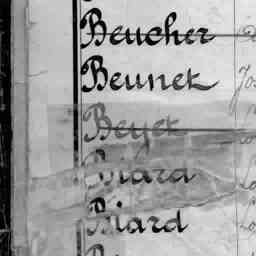 Beucher
Beunek
Beyek
Biard
Biard